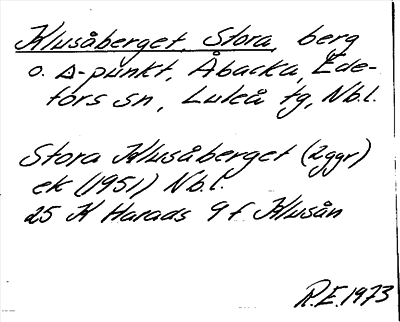 Klusåberget, Stora, berg
o. △-punkt, Åbacka, Ede-
fors sn, Luleå tg, Nb.l.
Stora Klusåberget (2ggr)
ek (1951) Nb.l.
25 K Harads 9 f Klusån
R.E. 1973